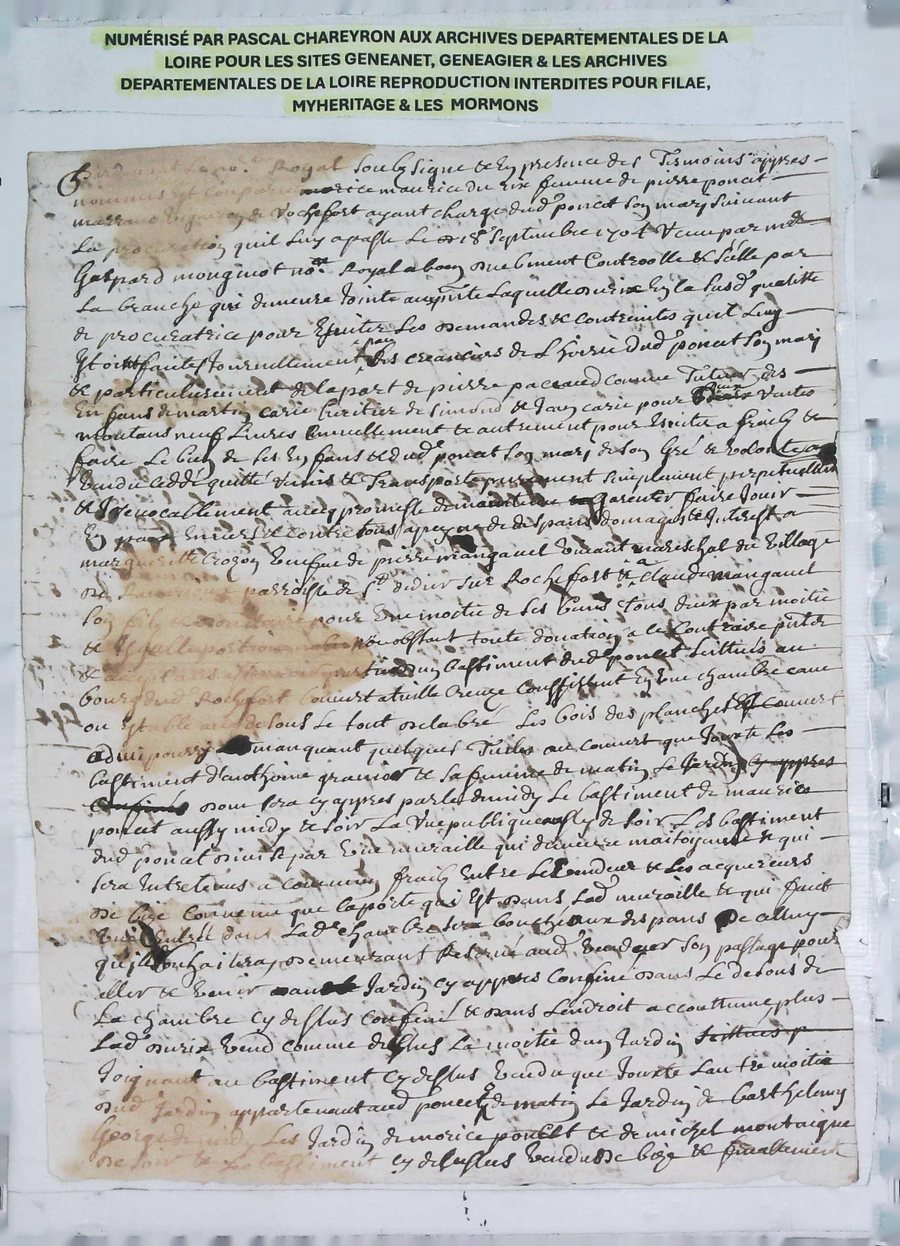 NUMÉRISÉ PAR PASCAL CHAREYRON AUX ARCHIVES DEPARTEMENTALES DE LA
LOIRE POUR LES SITES GENEANET, GENEAGIER & LES ARCHIVES
DEPARTEMENTALES DE LA LOIRE REPRODUCTION INTERDITES POUR FILAE,
MYHERITAGE & LES MORMONS
Royal soubsigne & en presence des Tesmoins appres
maurice du rix femme de pierre poncet
de Rochefort ayant charge dud poncet son mary suivant
La procuration quil luy a passe Le 18 Septembre
Gaspard monginot Royal Controolle & scelle par
La branche qui demeure Jointe Laquelle durix En la susd qualitte
de procuratrice pour Eviter Les demandes & contreintes quil luy
creanciers de Lhoirie dud poncet son mari
& particulierement de la part de pierre paccaud comme Tuteur des
Enfans de martin carie heritier de Simond & Jean carie pour
montans neuf Livres annuellement & autrement pour Eviter a fraicts &
faire Le bien de ses Enfans & dud poncet son mary de son Gré & volonte a
vendu cedde quitté remis & Transporte purement simplement perpetuellement
& Irevocablement avecq promesse de maintenir garentir faire Jouir
Envers & contre tous a peyne de despans domages & Interest a
marguerite crozon veufve de pierre mangavel vivant mareschal du village
parroisse de St didier sur Rochefort & a Claude mangavel
son fils pour Une moitie de ses biens tous deux par moitie
& nonobstant toute donation a le Contraire
bastiment dud poncet scittués au
bourg dud Rochefort couvert a tuille Creuze Consistant En Une chambre cave
ou Estable au desous Le tout delabré Les bois des planchers & couvert
a demi pourry manquant quelques Tuiles au couvert que Jouxte Les
bastiment danthoine granier & sa femme de matin Le Jardin
dont sera cy appres parlé de midy Le bastiment de maurice
poncet aussy midy & soir La Vue publique de soir Les bastiment
dud poncet divisé par Une muraille qui demeure maitoyenne & qui
sera Entretenus a commun fraicts Entre Le vendeur & Les acquereurs
de bize Convenu que la porte qui Est dans Lad muraille & qui faict
dans Lad chambre sera bouchee aux despans de celluy
qui souhaitera demeurans Reservé aud vendeur son passage pour
aller & venir Jardin cy appres Confiné dans Le desous de
La chambre cy dessus confiné & dans Lendroit accouttume plus
Lad durix vend comme dessus La moitie dun Jardin
Joignant au bastiment cy dessus vendu que Jouxte Lautre moitie
dud Jardin appartenant aud poncet de matin Le Jardin de barthelemy
George de midy Les Jardin de morice poncet & de michel montaigne
de soir & Les bastiment cy dessus vendus de bize & finallement